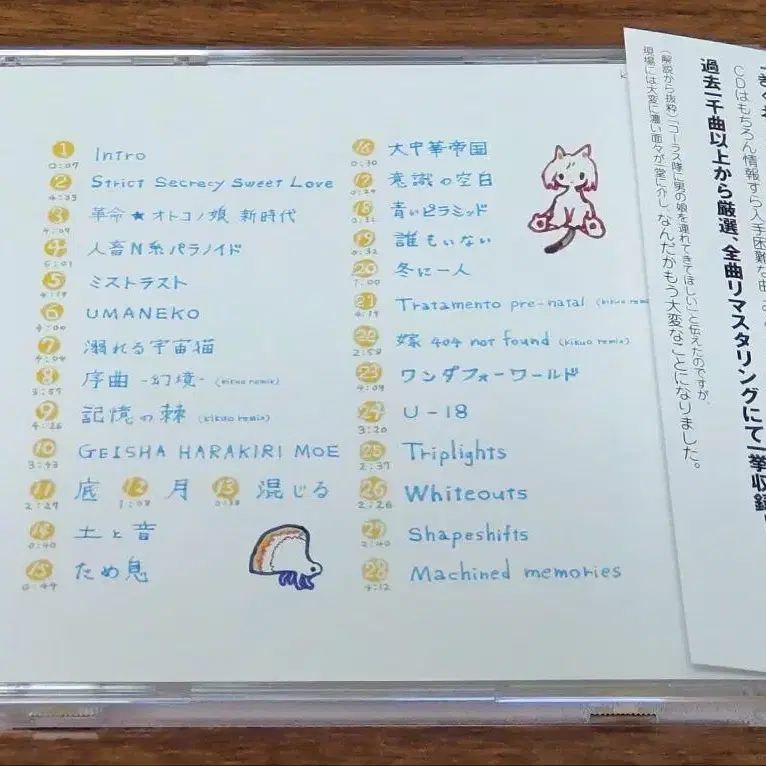 1 Intro
0:07
2 Strict Secrecy Sweet Love
4:23
3 革命★オトコノ娘 新時代
4:09
4 人畜N系パラノイド
5:01
5 ミストラスト
4:19
6 UMANEKO
4:00
7 溺れる宇宙猫
4:04
8 序曲 -幻境- (kikuo remix)
3:57
9 記憶の棘 (kikuo remix)
4:26
10 GEISHA HARAKIRI MOE
3:43
11 底 12 月 13 混じる
2:29 1:08
14 土と音
0:40
15 ため息
0:49
16 大中華帝国
0:30
17 意識の空白
18 青いピラミッド
19 誰もいない
0:32
20 冬に一人
1:00
21 Tratamento pre-natal (kikuo
4:19
22 嫁 404 not found (kikuo remix)
2:58
23 ワンダフォーワールド
4:09
24 U-18
3:20
25 Triplights
2:37
26 Whiteouts
2:26
27 Shapeshifts
2:40
28 Machined memories
4:12
CDはもちろん情報すら入手困難な曲
過去一千曲以上から厳選、全曲リマスタリングにて一挙収録
(解説から抜粋)「コーラス隊に男の娘を連れてきてほしい」と伝えたのですが、
現場には大変に濃い面々が一堂に介し、なんだかもう大変なことになりました。